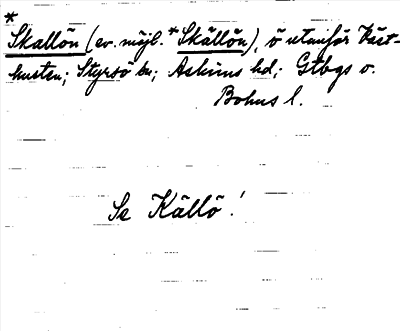 *
Skallön (ev. möjl. *Skällön), ö utanför Väst-
kusten; Styrsö kn; Askims hd; Gtbgs o.
Bohus l.
Se Källö!